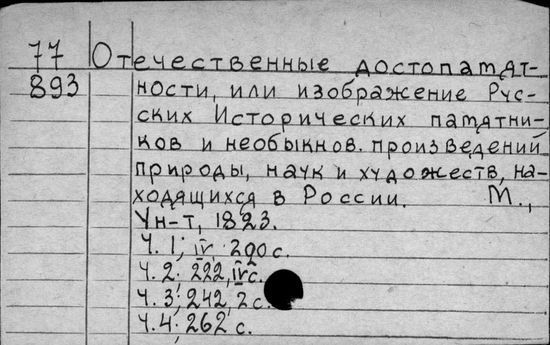 77 Отечественные достопамят-
893 ности, или изображение Рус-
ских Исторических памятни-
ков и необыкнов. произведений
природы, наук и художеств, на-
ходящихся в России. М.,
Ун-т, 1823.
Ч. 1; IV, 200 с.
Ч. 2; 222, IV с.
Ч. 3; 242, 2 с.
Ч. 4; 262 с.